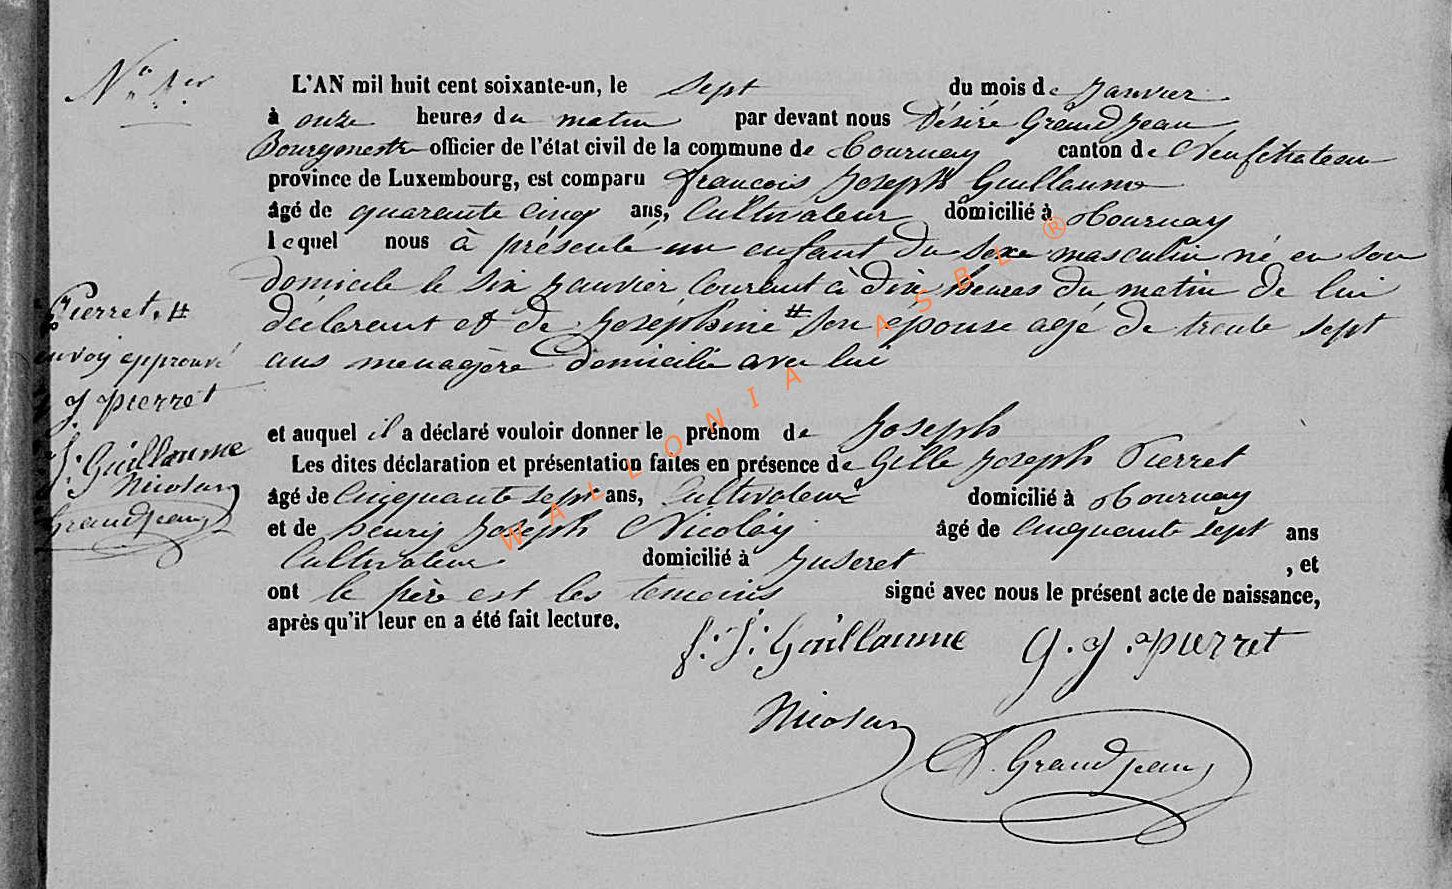 N° 1er
L'AN mil huit cent soixante-un, le sept du mois de Janvier
à onze heures du matin par devant nous Désiré Grandjean
Bourgmestre officier de l'état civil de la commune de Tournay canton de Neufchateau
province de Luxembourg, est comparu françois Joseph Guillaume
âgé de quarante cinq ans, Cultivateur domicilié à Tournay
lequel nous à présenté un enfant du sexe masculin né en son
domicile le six Janvier courant à dix heures du matin de lui
déclarant et de Joséphine # son épouse agé de trente sept
ans menagère domicilié avec lui
Pierret. #
envoi approuvé
g J pierret
f. J. Guillaume
Nicolay
Grandjean
et auquel il a déclaré vouloir donner le prénom de Joseph
Les dites déclaration et présentation faites en présence de Gille Joseph Pierret
âgé de Cinquante sept ans, Cultivateur domicilié à Tournay
et de henry Joseph Nicolay âgé de Cinquante sept ans
Cultivateur domicilié à Juseret , et
ont le père est les temoins signé avec nous le présent acte de naissance,
après qu'il leur en a été fait lecture.
f. J. Guillaume g. J. pierret
Nicolay
D. Grandjean
WALLONIA ASBL ®